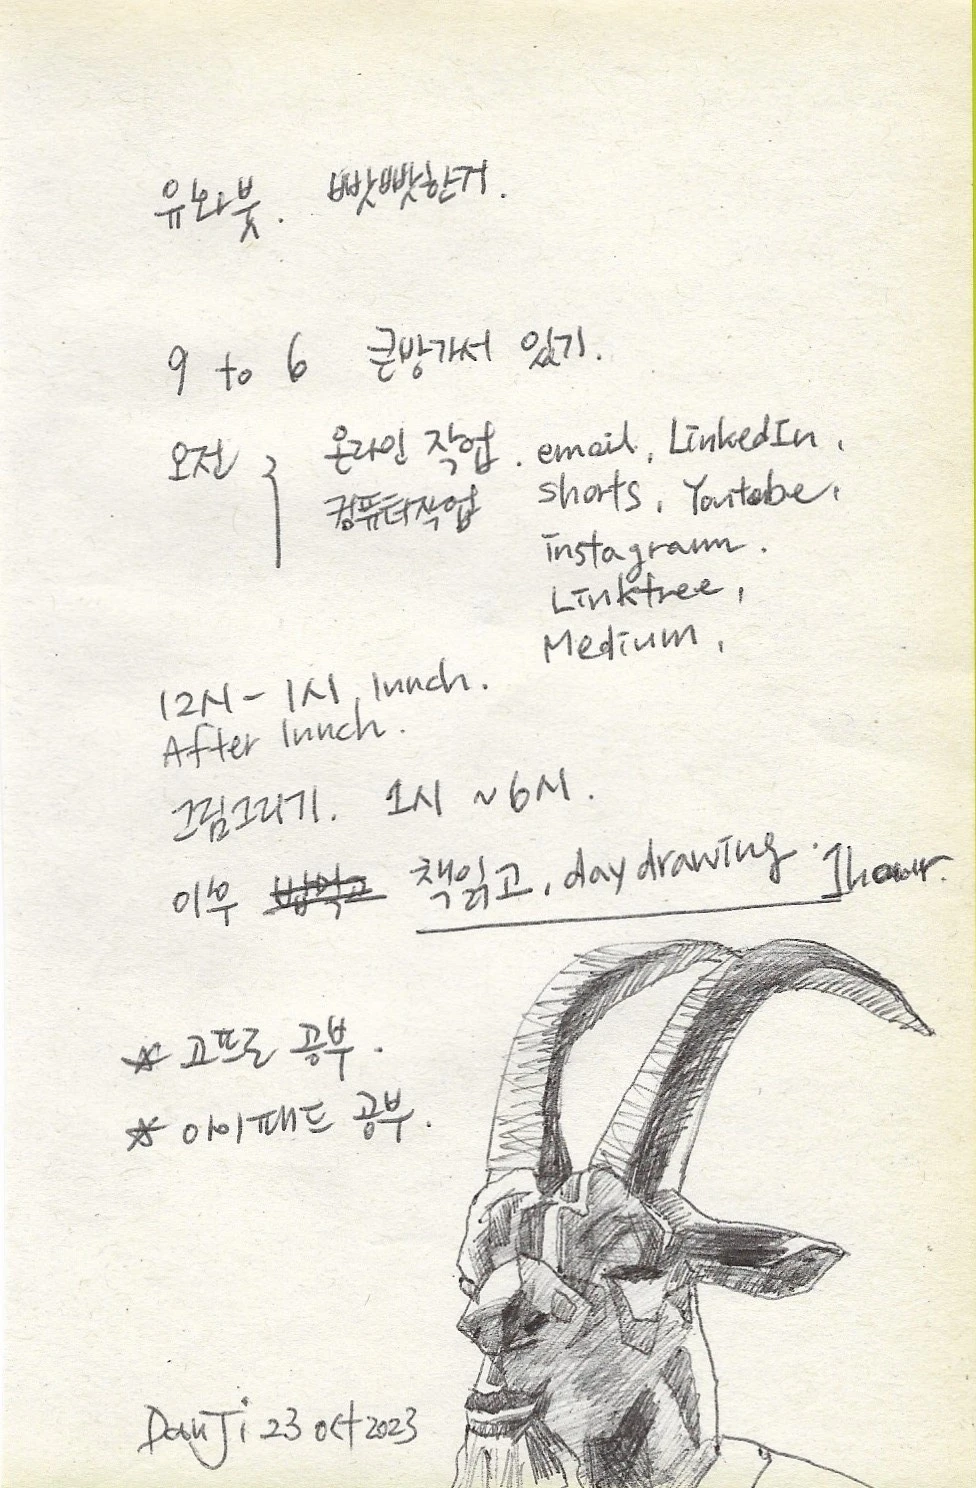 유화붓. 빳빳한거.
9 to 6 큰방가서 있기.
오전 온라인 작업. email, LinkedIn,
컴퓨터작업 shorts, Youtobe,
instagram.
Linktree,
Medium,
12시 - 1시 lunch.
After lunch.
그림그리기. 1시 ~ 6시.
이후 밥먹고 책읽고, day drawing. 1hour.
☆ 고프로 공부.
☆ 아이패드 공부.
DanJi 23 Oct 2023